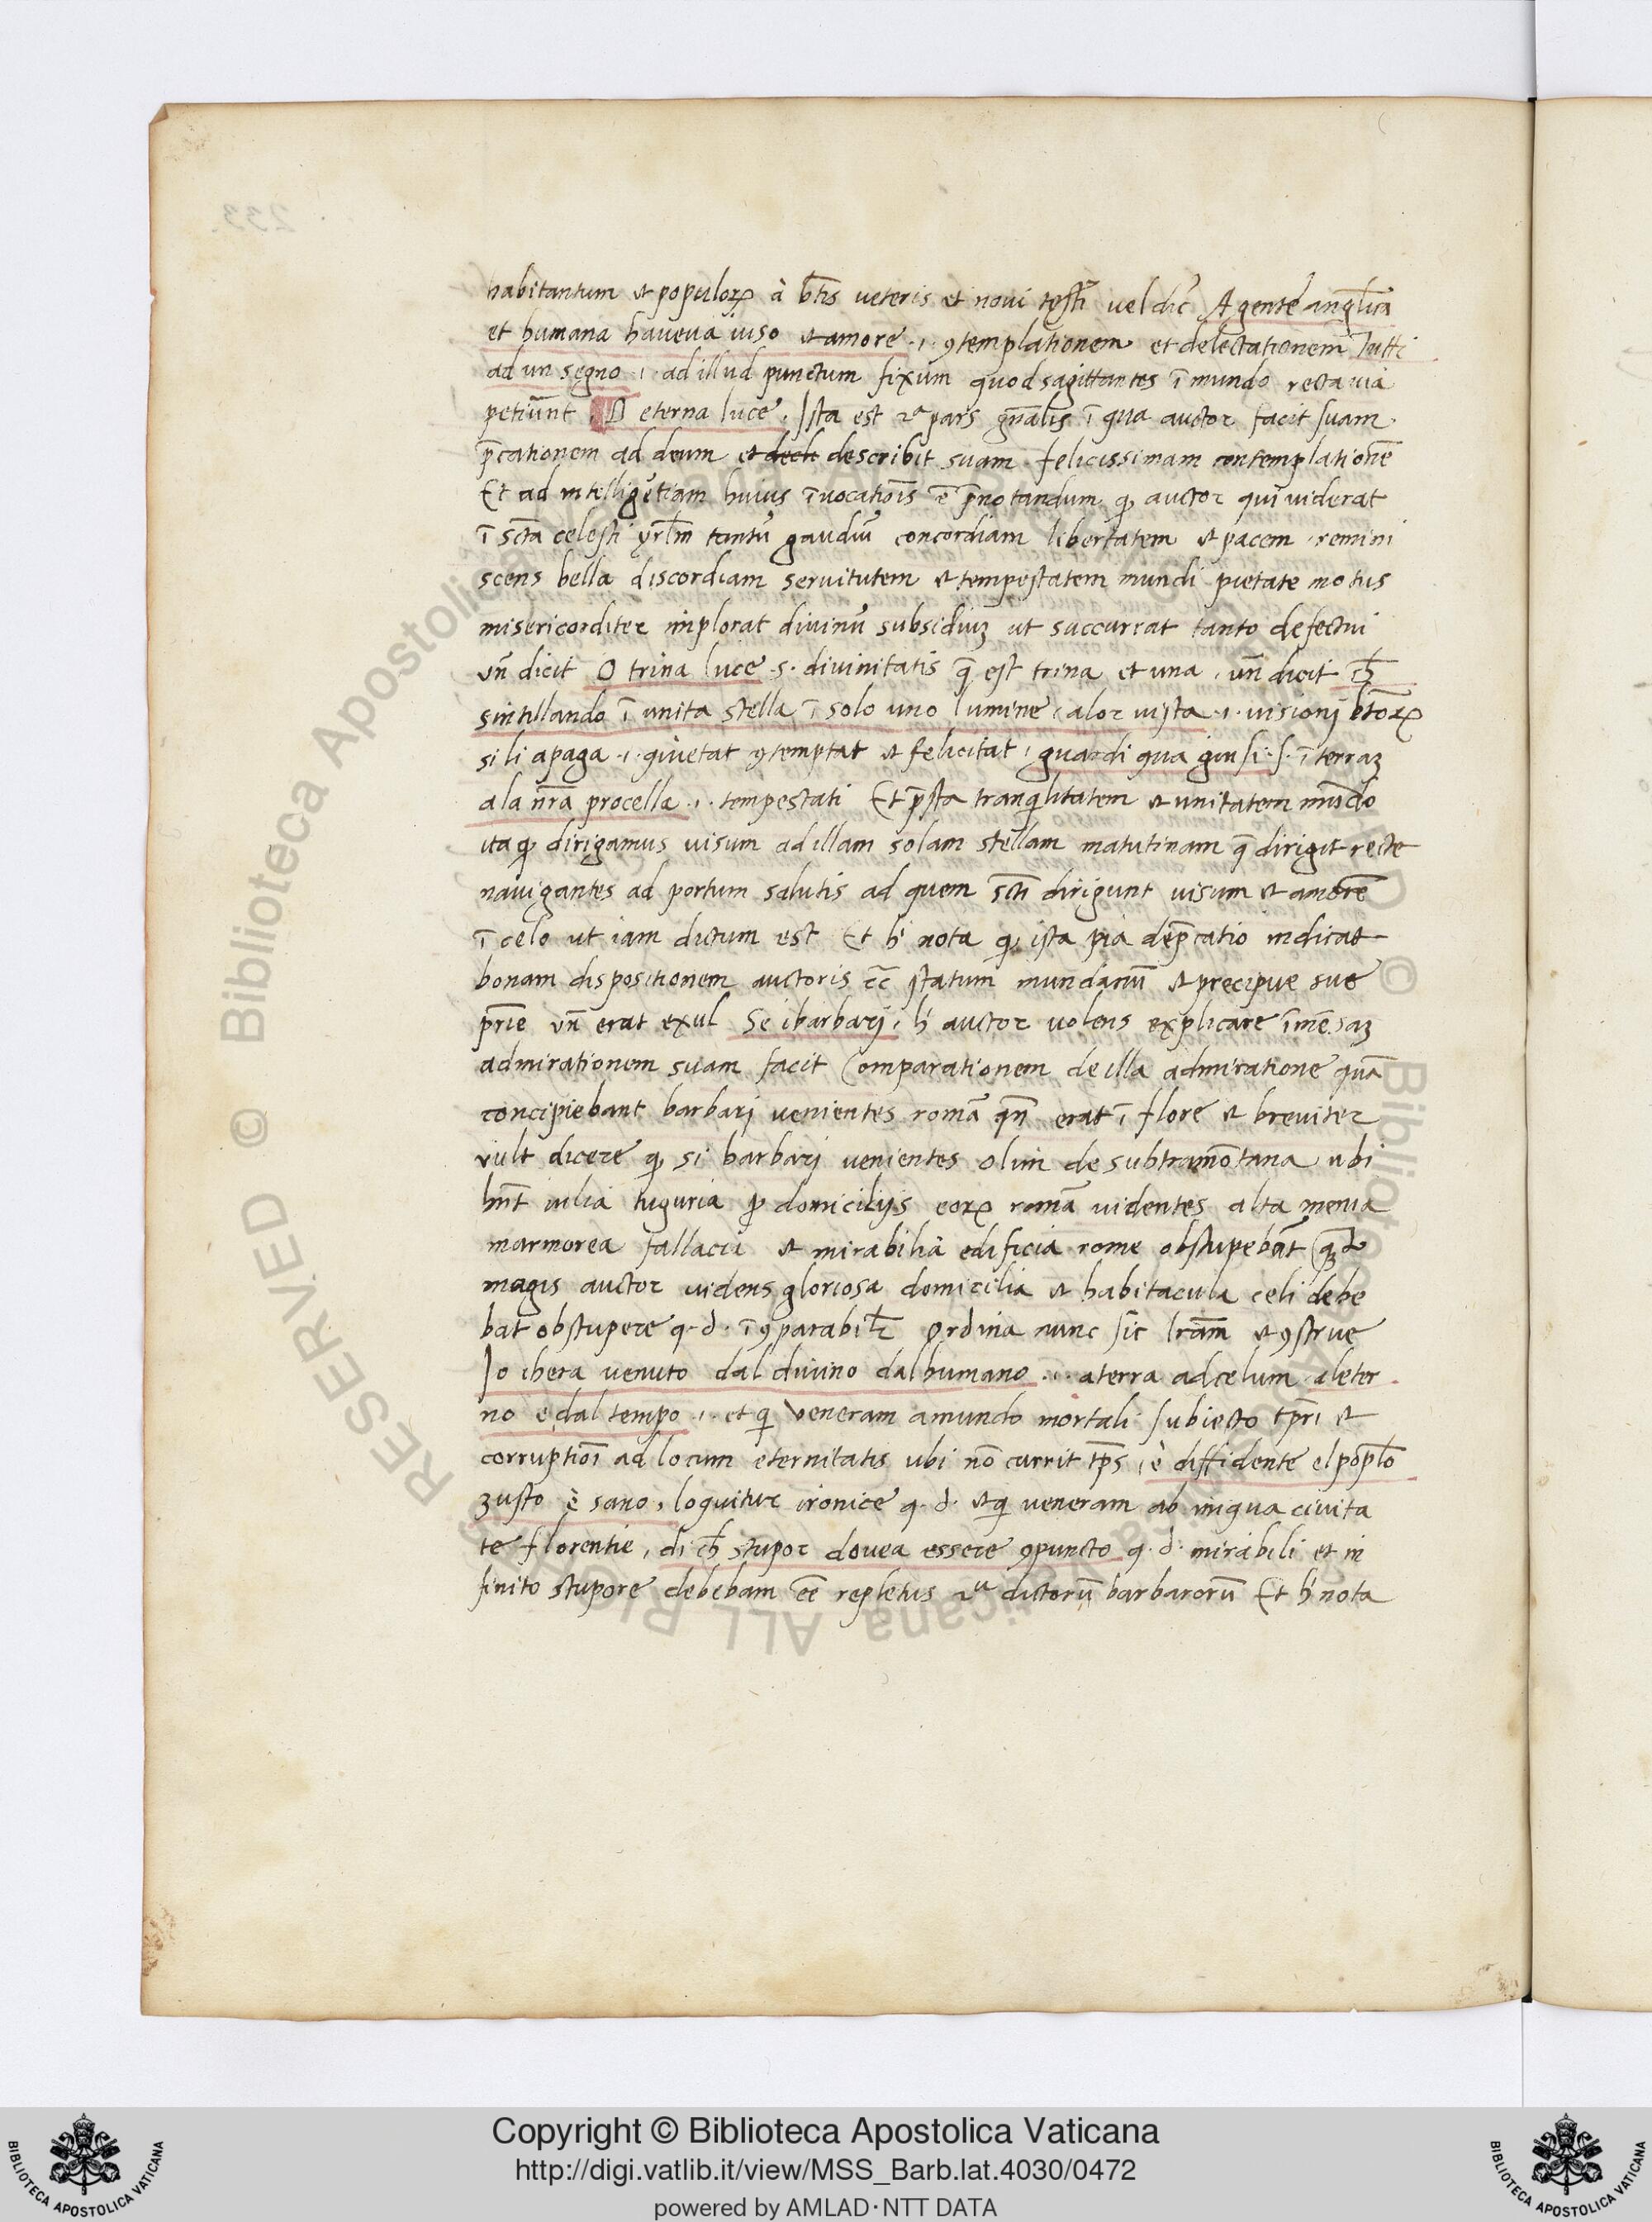 habitantum et populoꝝ à bt̄is veteris et novi test̄i vel dic̄ A gente angl̄ica
et humana haveva viso et amore .i. ꝯtemplationem et delectationem Tutti
ad un segno .i. ad illud punctum fixum quod sagittantes ī mundo recta via
petiūnt . O eterna luce . Ista est 2ª pars gn̄alis ī qua auctor facit suam
p̄cationem ad deum et dech describit suam felicissimam contemplationē
Et ad intelligētiam huius īvocatiōis ē p̄notandum ꝙ auctor qui viderat
ī sct̄a celesti yrl̄m tantū gaudiū concordiam libertatem et pacem . remini
scens bella discordiam servitutem et tempestatem mundi pietate motus
misericorditer implorat divinū subsidiuꝫ ut succurrat tanto defectui
vn̄ dicit O trina luce .s. divinitatis q̄ est trina et una . un̄ dicit
sintillando ī unita stella ī solo uno lumine . alor vista .i. visioni bt̄oꝝ
si li apaga .i. quietat ꝯtemptat et felicitat . guardi qua giusi .s. ī terraꝫ
a la nr̄a procella .i. tempestati Et p̄sta tranqͥlitatem et unitatem mūdo
ita ꝙ dirigamus visum ad illam solam stellam matutinam q̄ dirigit recte
navigantes ad portum salutis ad quem sct̄i dirigunt visum et amorē
ī celo ut iam dictum est Et h̓ nota ꝙ ista pia dep̄catio indicat
bonam dispositionem auctoris cc̄ statum mundanū et precipue sue
pr̄ie vn̄ erat exul Se i barbari . h̓ auctor volens explicare īmēsaꝫ
admirationem suam facit Comparationem de illa admiratione quā
concipiebant barbari venientes romā qn̄ erat ī flore et breviter
vult dicere ꝙ si barbari venientes olim de subtramōtana ubi
hn̄t vilia tuguria ꝓ domicilijs eoꝝ romā videntes alta menia
marmorea fallacia et mirabilia edificia rome obstupebāt
magis auctor videns gloriosa domicilia et habitacula celi debe
bat obstupere q.d. īꝯparabilr̄ Ordina nunc sic lr̄am et ꝯstrue
Io ch era venuto dal divino dal humano .i. a terra ad celum al eter
no e dal tempo .i. et qͥ veneram a mundo mortali subiecto tp̄ri et
corruptioī ad locum eternitatis ubi nō currit tp̄s . è diffidente el popl̄o
ꝫusto è sano . loquitur ironice q.d. et qͥ veneram ab iniqua civita
te florentie . di ch̄ stupor dovea essere ꝯpuncto q.d. mirabili et in
finito stupore debebam ēē repletus 2ª dictorū barbarorū Et h̓ nota
Copyright © Biblioteca Apostolica Vaticana
http://digi.vatlib.it/view/MSS_Barb.lat.4030/0472
powered by AMLAD·NTT DATA